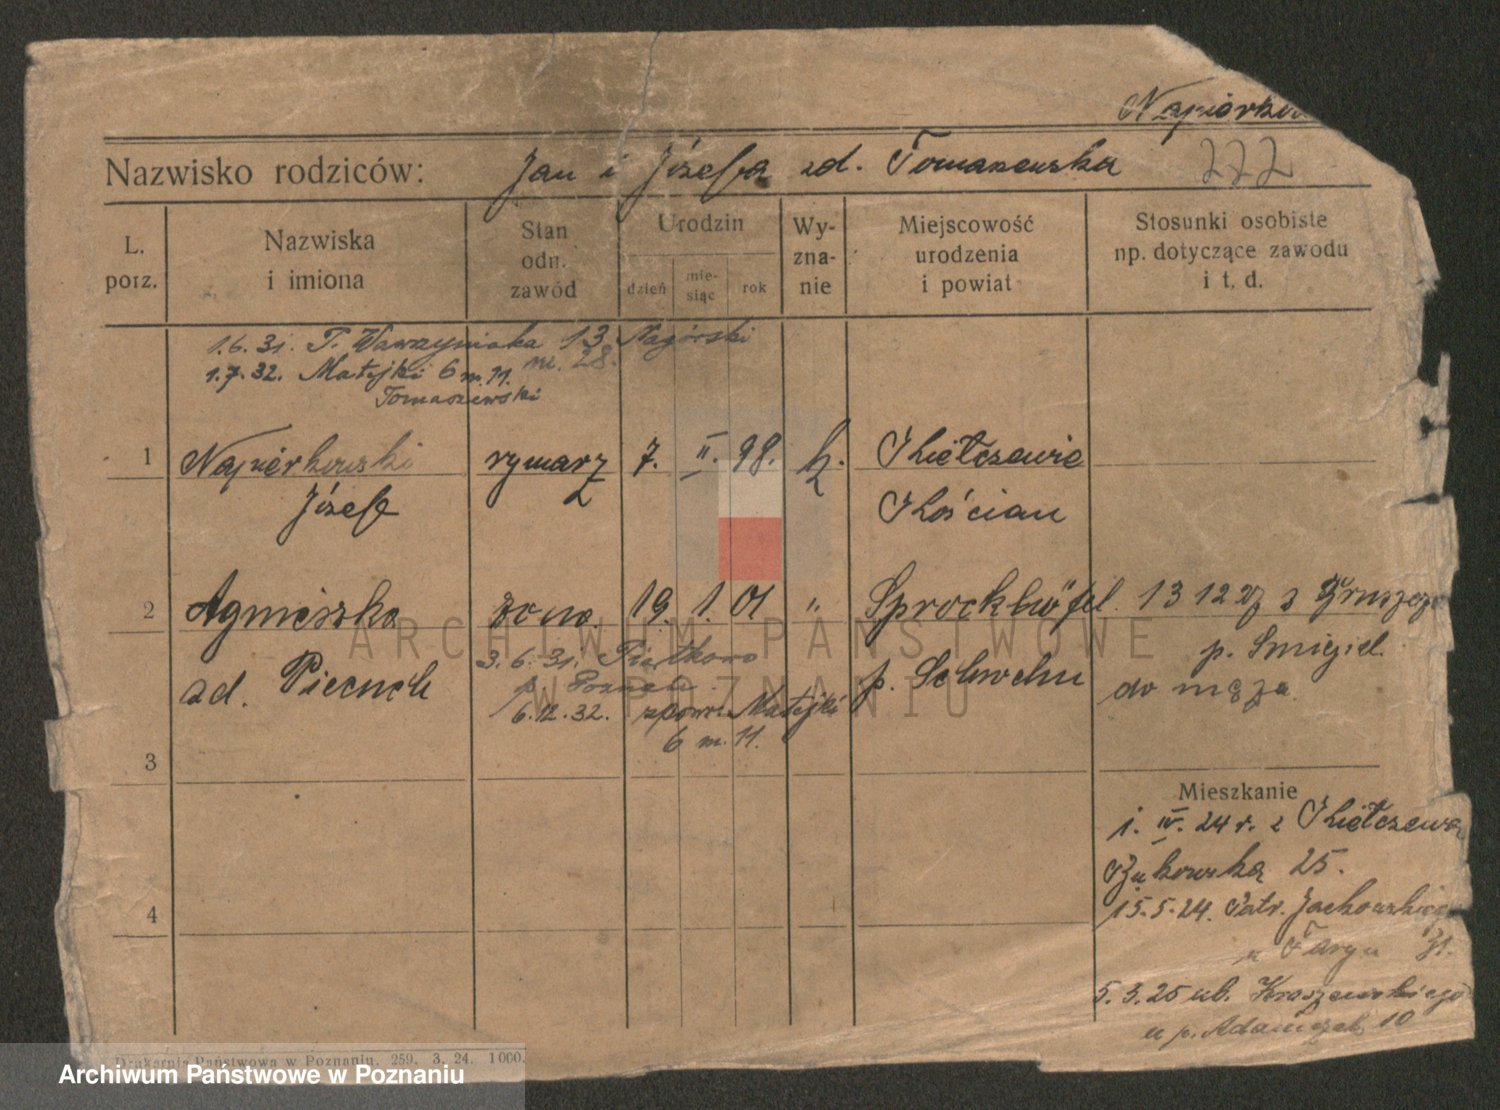 Napiórkow
Nazwisko rodziców: Jan i Józefa zd. Tomaszewska 222
L. porz.
Nazwiska i imiona
Stan odn. zawód
Urodzin
dzień
mie-siąc
rok
Wy-zna-nie
Miejscowość urodzenia i powiat
Stosunki osobiste np. dotyczące zawodu i t. d.
1.6.31. F. Wawrzyniaka 13 Nagórski
m. 28.
1.7.32. Matejki 6 m. 11.
Tomaszewski
1 Napierkowski rymarz 7. II. 98. k. Kiełczewie
Józef Kościan
2 Agnieszka żona 19. 1. 01 " Sprockhöfel. 13 12 27 z
p. Śmigiel.
zd. Piecuch p. Schwelm do męża.
3.6.31. Piątkowo
p. Poznań
6.12.32. Matejki
6 m. 11.
3
Mieszkanie
1. IV. 24 r. z Kiełczewa
Bukowska 25.
15.5.24. Patr. Jackowskiego
u 31.
4
5.3.25 ul. Kraszewskiego
u p. Adamczak 10
Drukarnia Państwowa w Poznaniu. 259. 3. 24. 1000.
ARCHIWUM PAŃSTWOWE
W POZNANIU
Archiwum Państwowe w Poznaniu